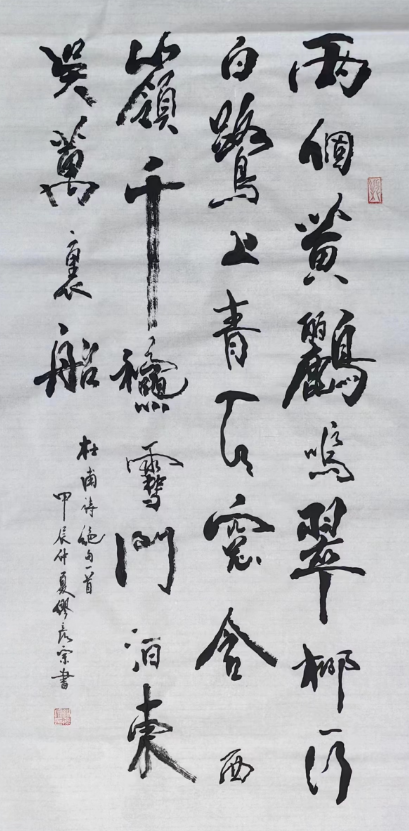 兩個黃鸝鳴翠柳一行
白鷺上青天窓含西
嶺千龝雪門泊東
吴萬裏船
杜甫诗绝句一首
甲辰仲夏宗書